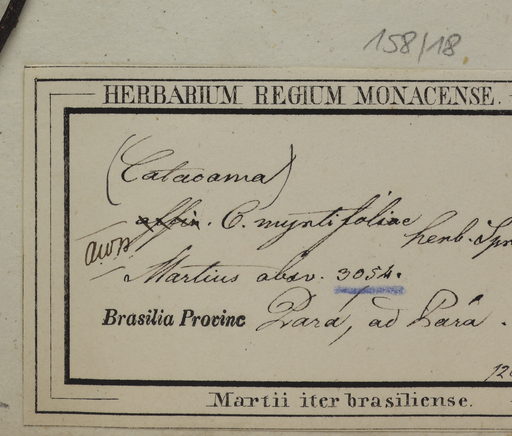 158/18
HERBARIUM REGIUM MONACENSE.
(Catacoma)
affin. C. myrtifoliae
herb. Spr
Martius obsv. 3054.
Brasilia Provinc Pará, ad Pará.
Martii iter brasiliense.